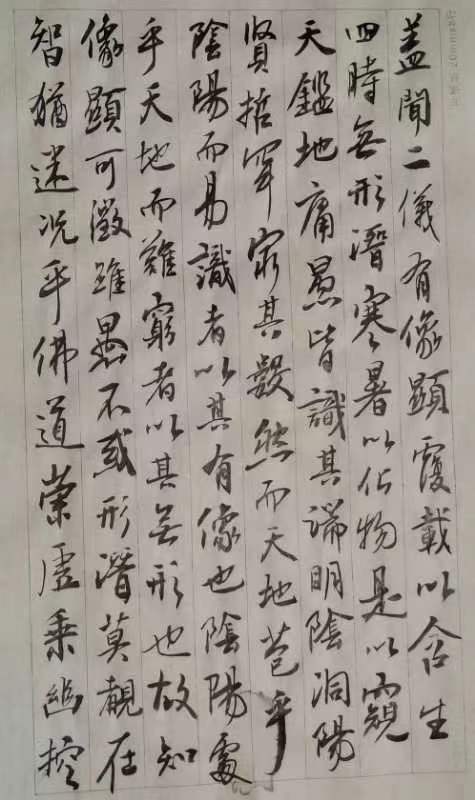 蓋聞二儀有像顯覆載以含生
四時無形潛寒暑以化物是以窺
天鑑地庸愚皆識其端明陰洞陽
賢哲罕窮其數然而天地苞乎
陰陽而易識者以其有像也陰陽處
乎天地而難窮者以其無形也故知
像顯可徵雖愚不惑形潛莫覩在
智猶迷況乎佛道崇虛乘幽控